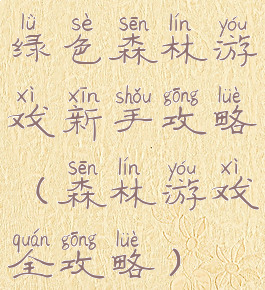 lǜ sè sēn lín yóu
绿色森林游
xì xīn shǒu gōng lüè
戏新手攻略
sēn lín yóu xì
(森林游戏
quán gōng lüè
全攻略)